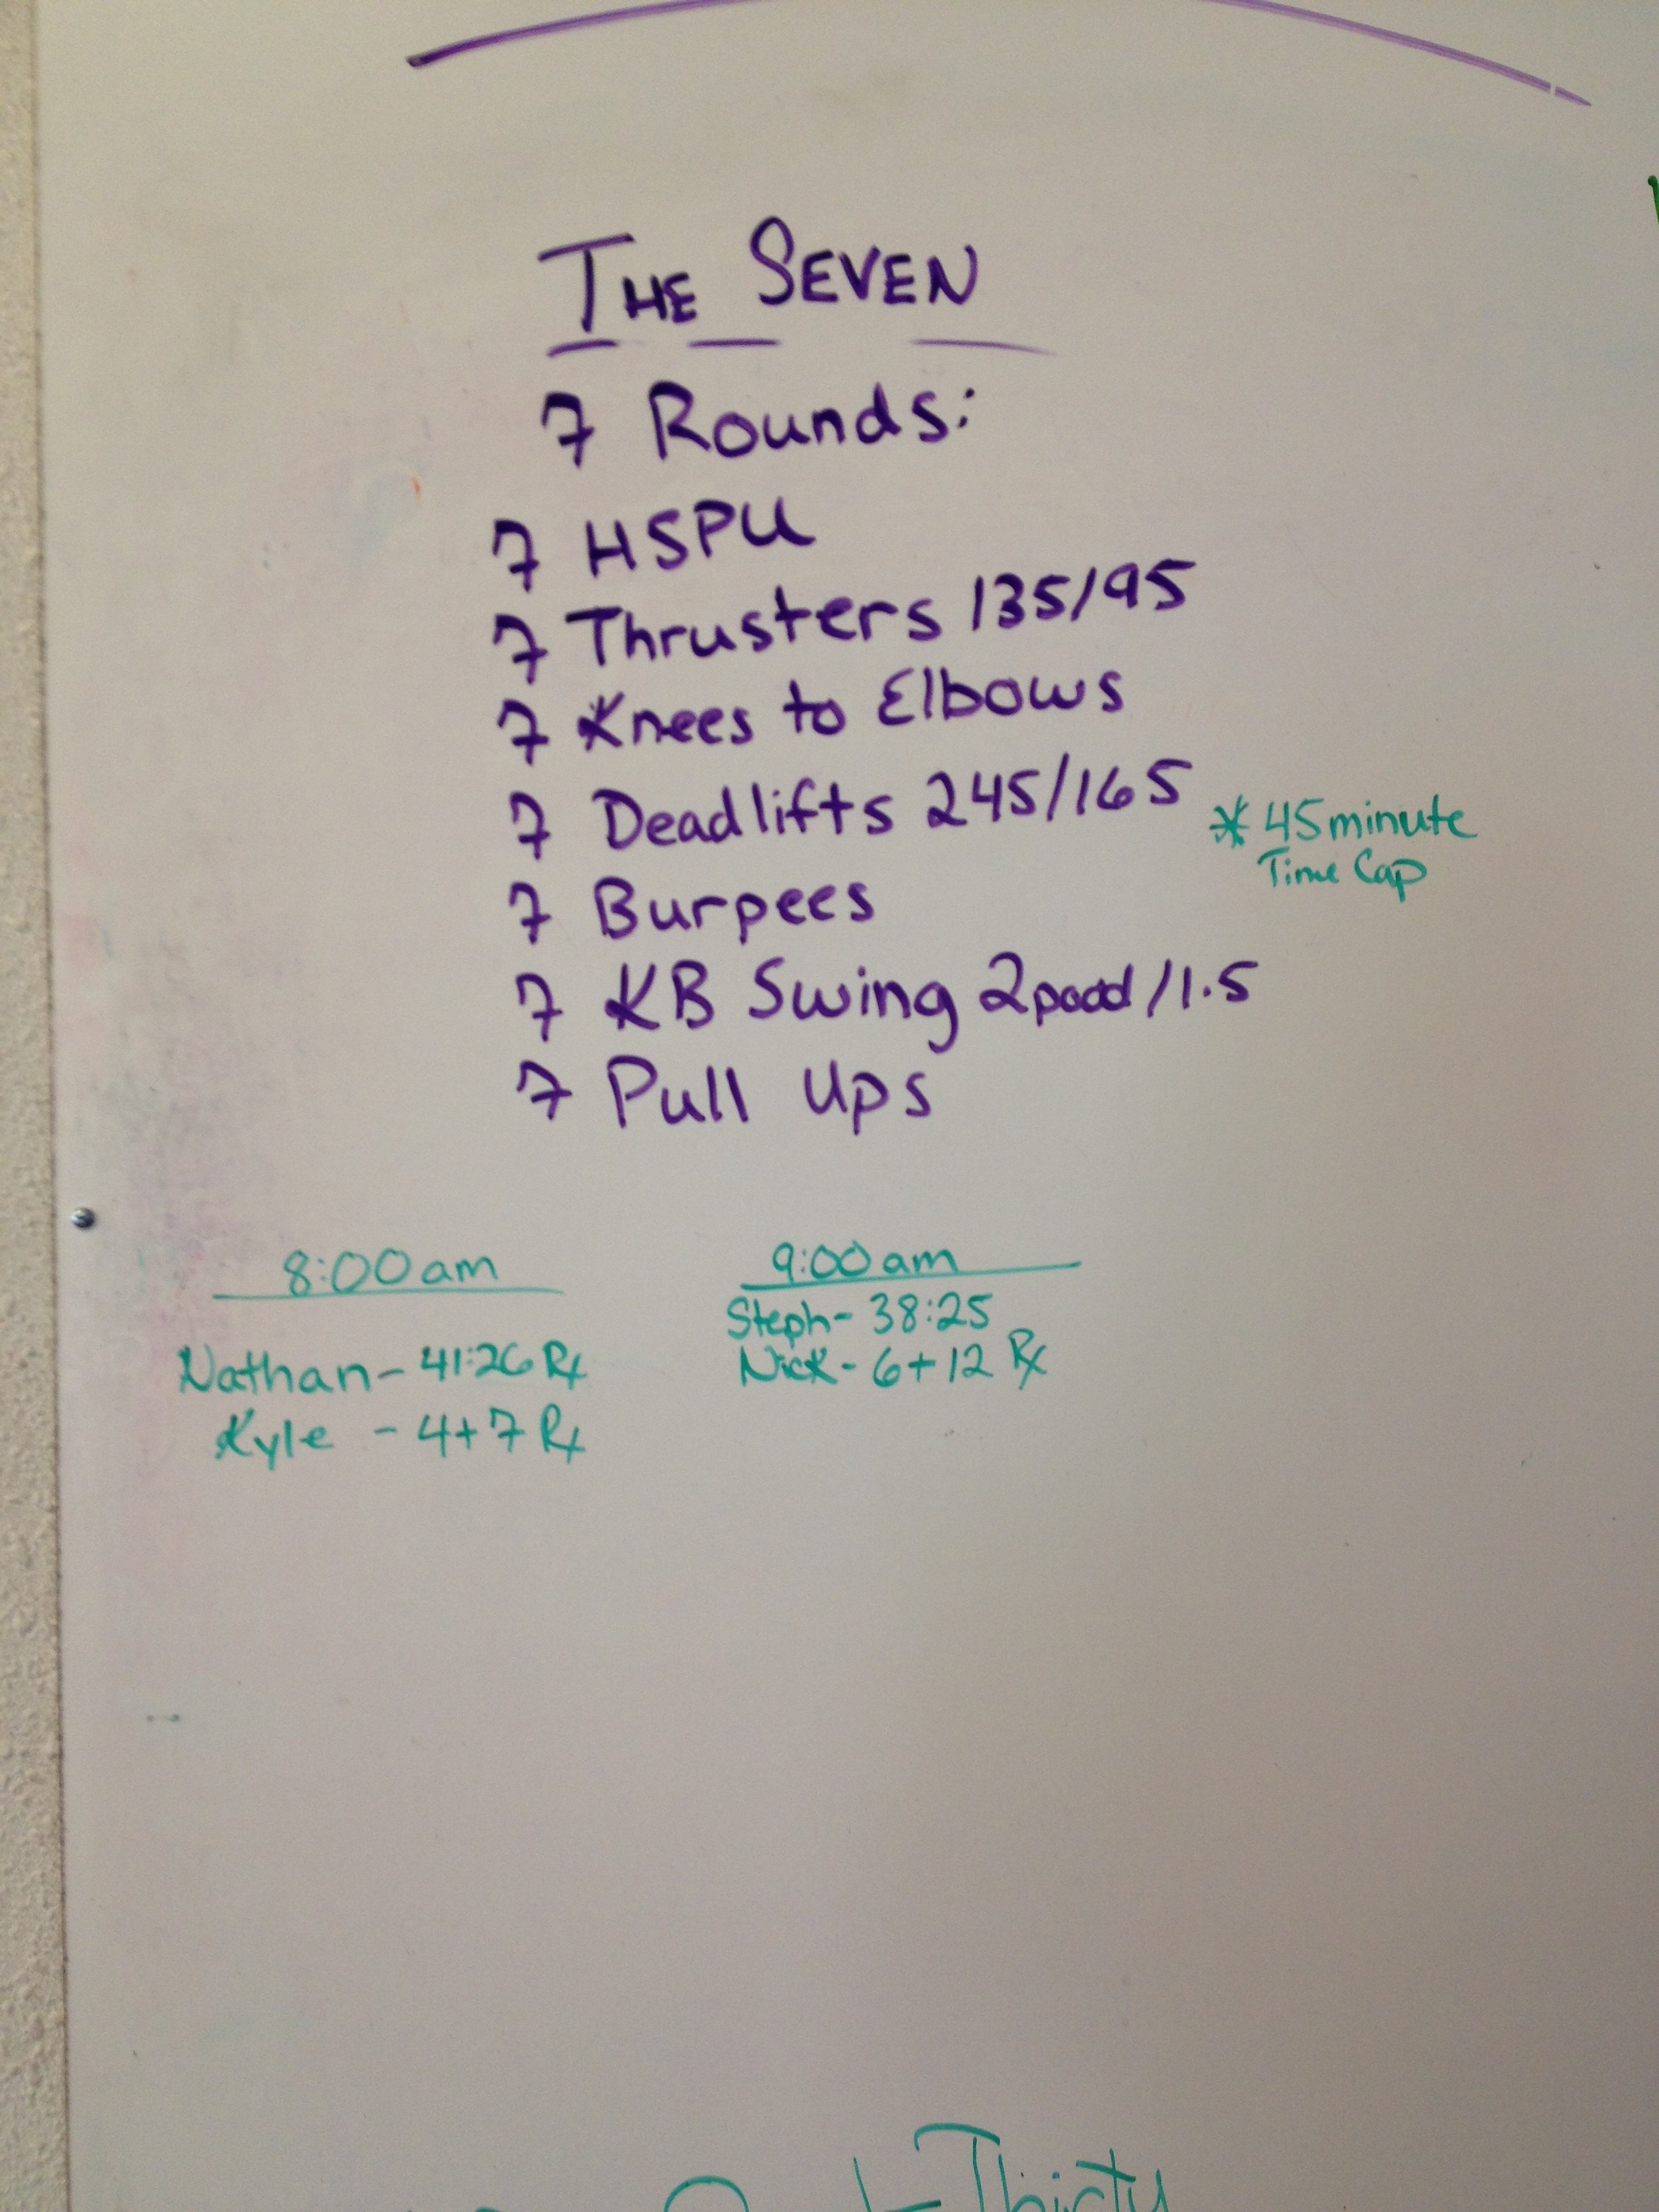 THE SEVEN
7 Rounds:
7 HSPU
7 Thrusters 135/95
7 Knees to Elbows
7 Deadlifts 245/165
* 45 minute
Time Cap
7 Burpees
7 KB Swing 2pood/1.5
7 Pull Ups
8:00 am
Nathan - 41:26 Rx
Kyle - 4+7 Rx
9:00 am
Steph - 38:25
Nick - 6+12 Rx
Thirty